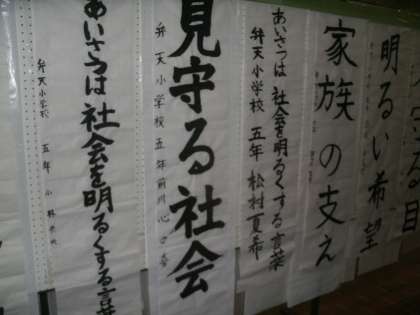 明るい希望
家族の支え
あいさつは社会を明るくする言葉
弁天小学校 五年 松村夏希
見守る社会
弁天小学校五年
あいさつは社会を明るくする言葉
弁天小学校 五年